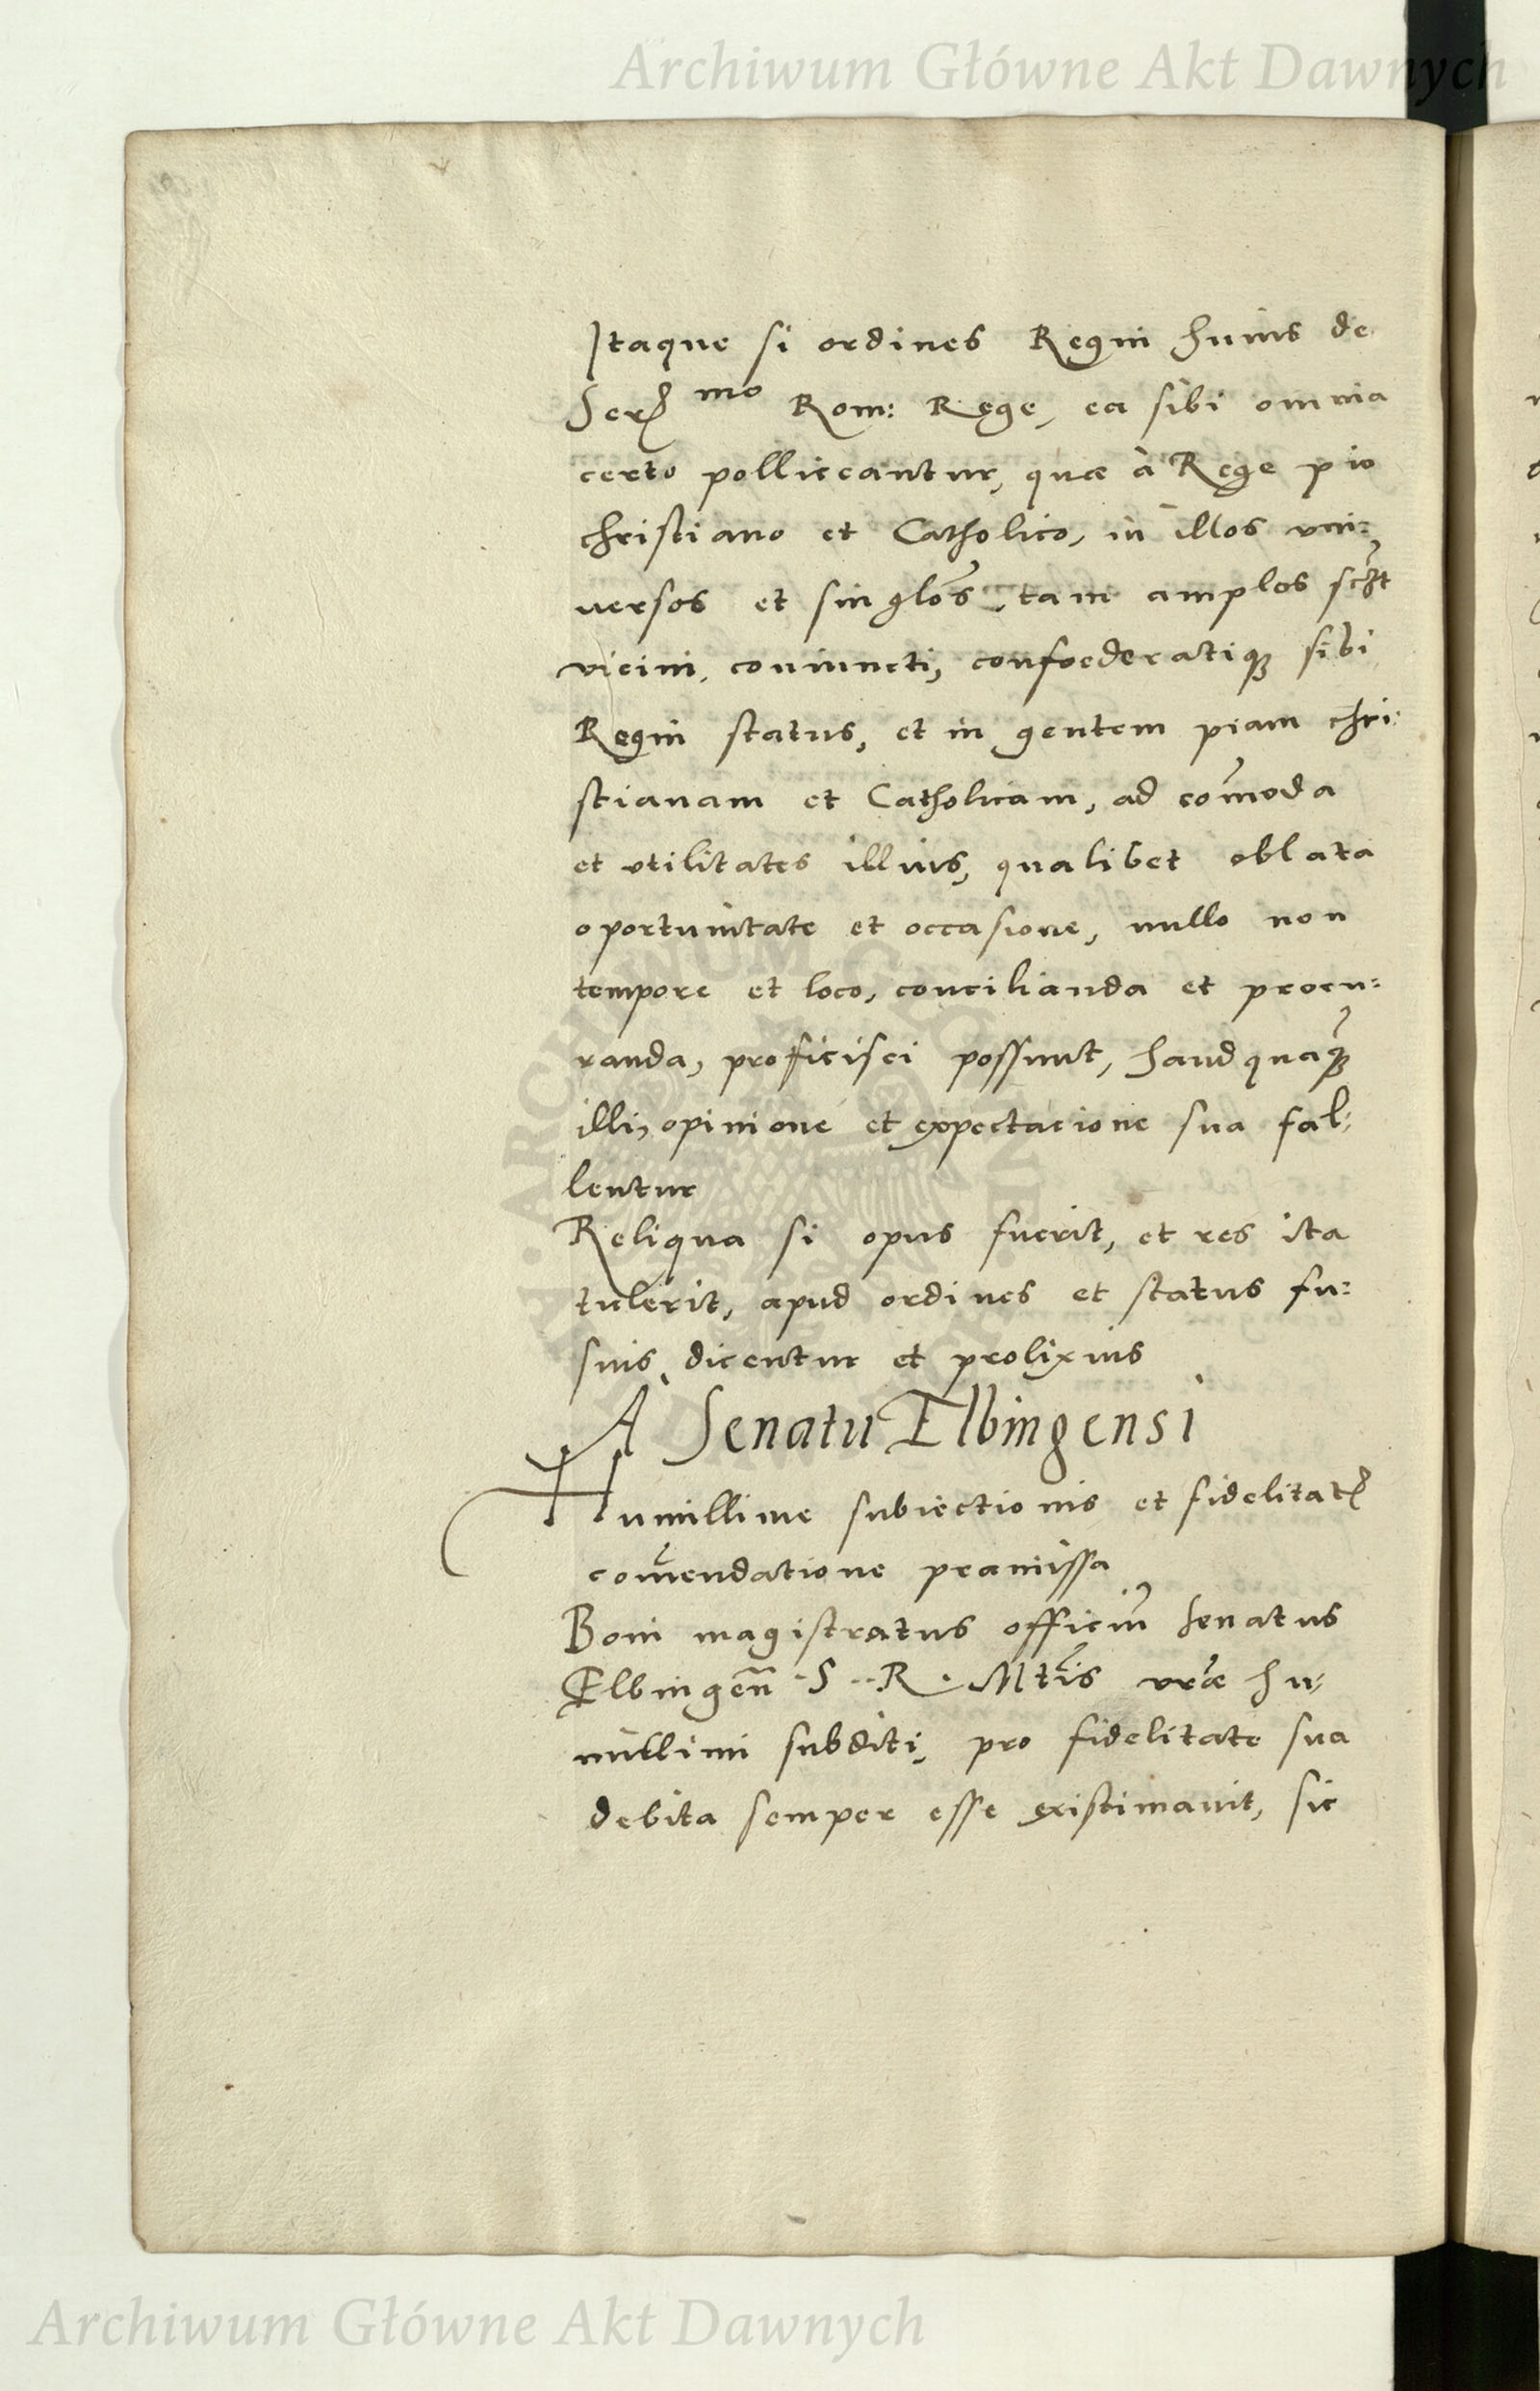 Archiwum Główne Akt Dawnych
Itaque si ordines Regni huius de
Ser. mo Rom: Rege, ea sibi omnia
certo polliceantur, quæ à Rege pio
christiano et Catholico, in illos vni=
uersos et singlos, tam amplos
vicini, coniuncti, confoederatiq3 sibi
Regni status, et in gentem piam chri:
stianam et Catholicam, ad com̃oda
et vtilitates illius, qualibet oblata
oportunitate et occasione, nullo non
tempore et loco, concilianda et procu=
randa, proficisci possunt, haud quaq3
illi, opinione et expectacione sua fal,
lentur
Reliqua si opus fuerit, et res ita
tulerit, apud ordines et status fu=
sius, dicentur et prolixius
A Senatu Elbingensi
Humillime subiectionis et fidelitat.
com̃endatione pramissa
Boni magistratus officiũ Senatus
Elbingen̄ S. R. Mtis vræ hu,
millimi subditi, pro fidelitate sua
debita semper esse existimauit, sic
ARCHIWUM
Archiwum Główne Akt Dawnych